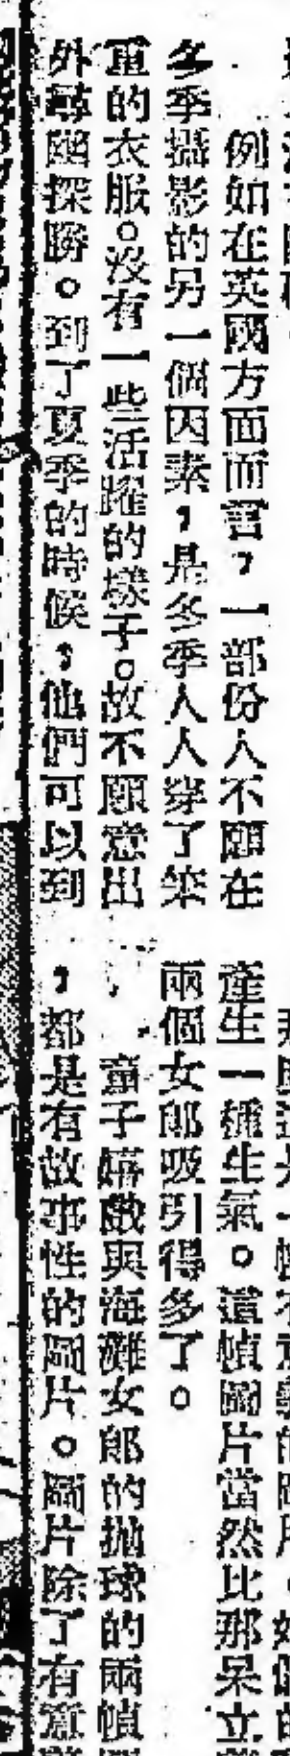 例如在英國方面而言，一部份人不願在
冬季攝影的另一個因素，是冬季人人穿了笨
重的衣服。沒有一些活躍的樣子。故不願意出
外尋幽探勝。到了夏季的時候，他們可以到
產生一種生氣。這幀圖片當然比那呆立
兩個女郎吸引得多了。
童子嬉戲與海灘女郎的拋球的兩幀
，都是有故事性的圖片。圖片除了有意